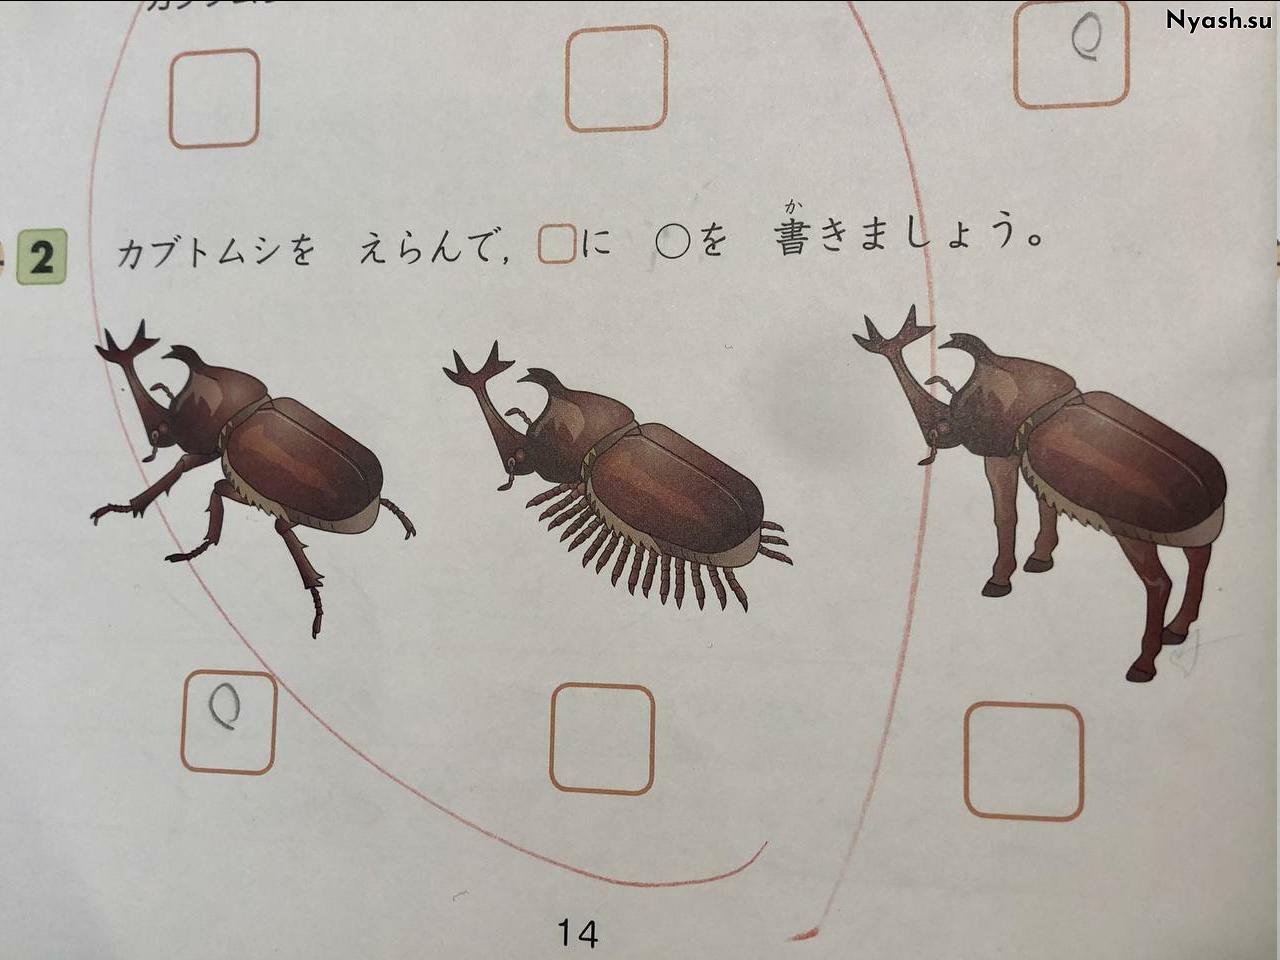 Nyash.su
か
2 カブトムシを えらんで, □に ○を 書きましょう。
14